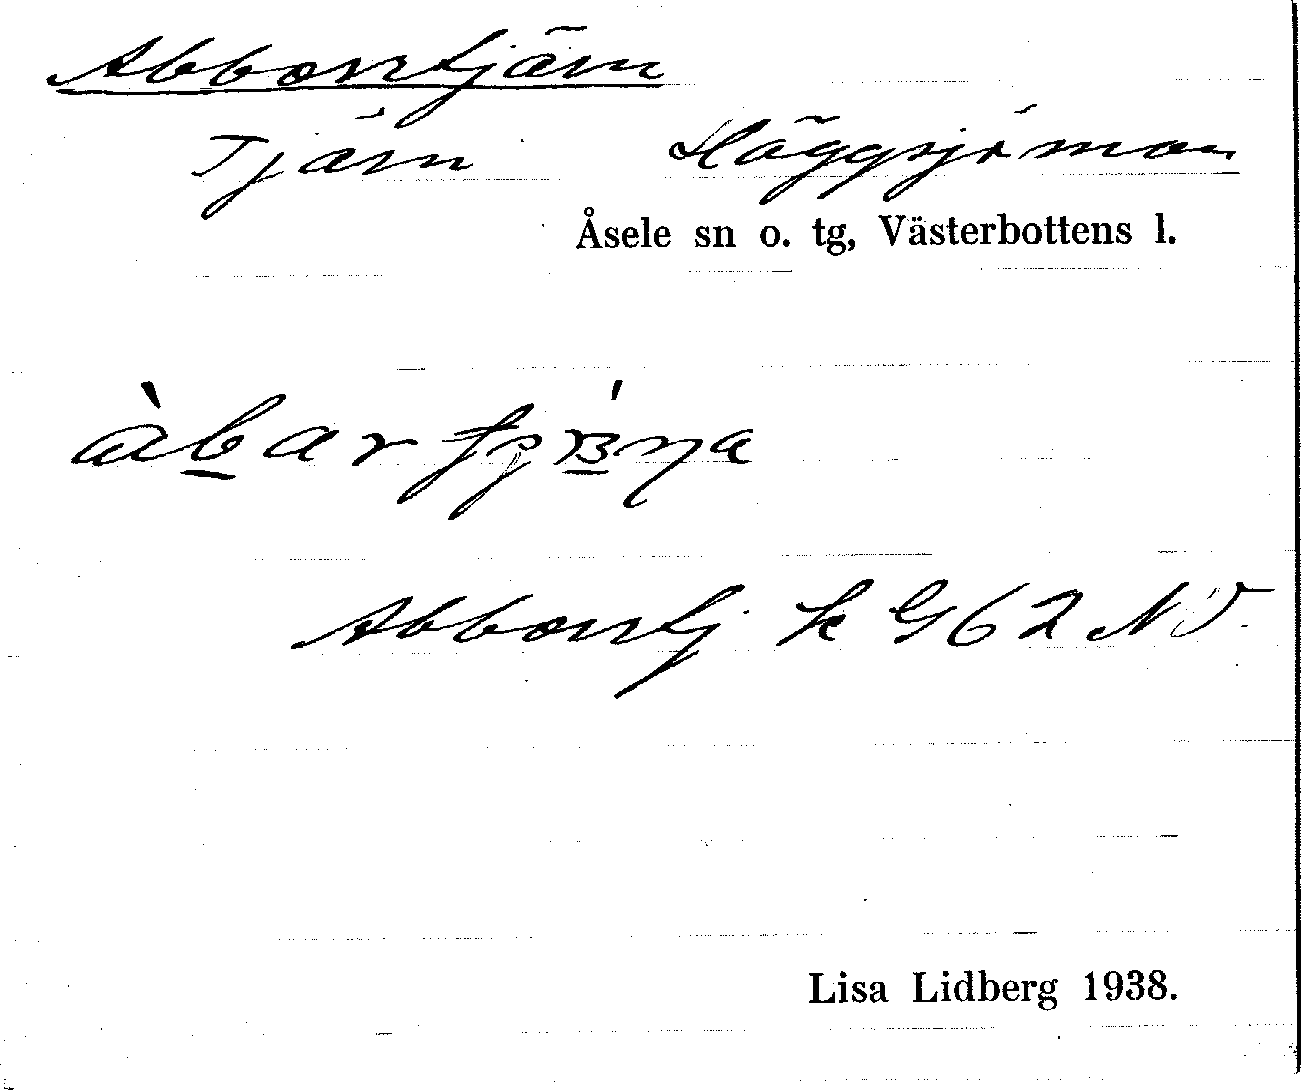 Abborrtjärn
Tjärn Häggsjömon
Åsele sn o. tg, Västerbottens l.
Abborrtj k G 62 NV
Lisa Lidberg 1938.